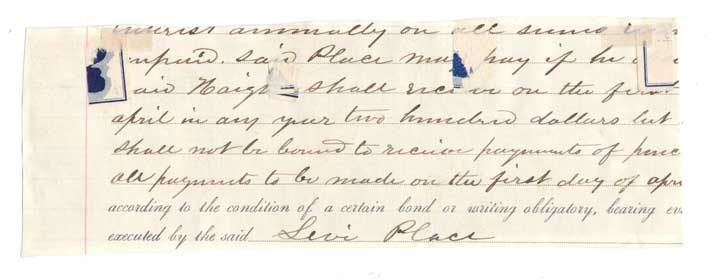 interest annually on all sums
unpaid. Said Place may pay if he
said Haight shall receive on the first
april in any year two hundred dollars but
shall not be bound to receive payments of princ
all payments to be made on the first day of apri
according to the condition of a certain bond or writing obligatory, bearing ev
executed by the said Levi Place